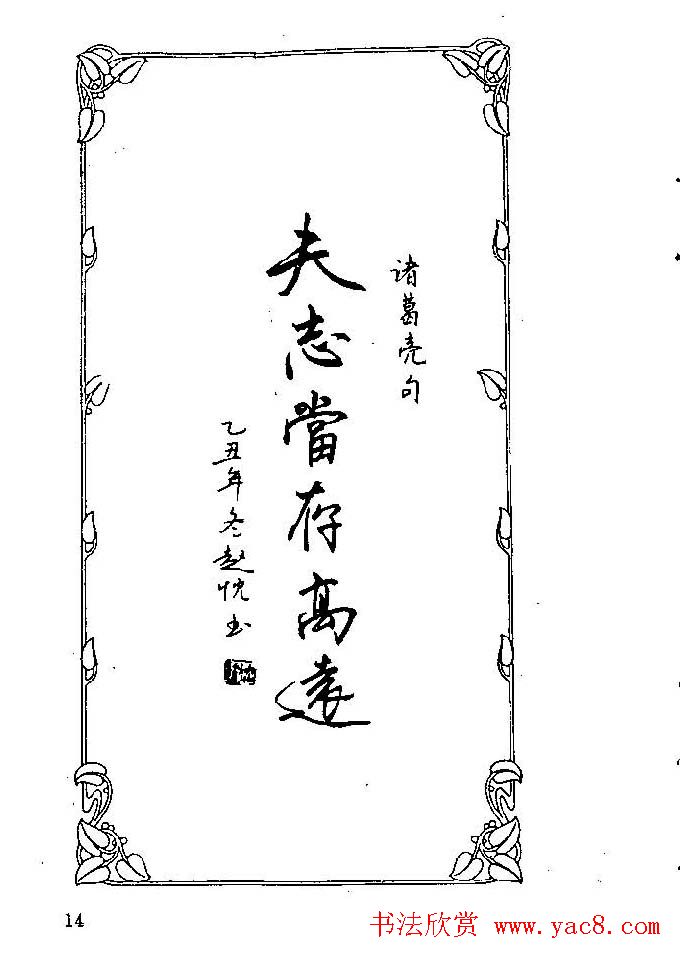 诸葛亮句
夫志當存高遠
乙丑年冬赵忱书
14
书法欣赏 www.yac8.com